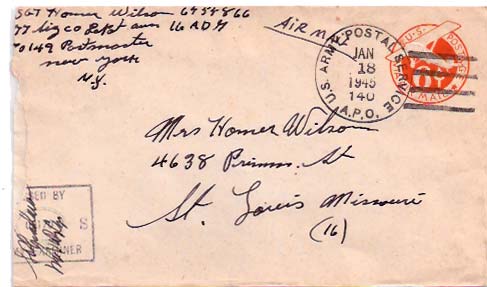 SGT Homer Wilson 6954866
16 ADG
149 Postmaster
new york
N.Y.
Air Mail
U.S. ARMY POSTAL SERVICE
JAN
18
1945
140
A.P.O.
U.S. POSTAGE
AIR MAIL
Mrs Homer Wilson
4638 Primm. St
St. Louis Missouri
(16)
ED BY
S